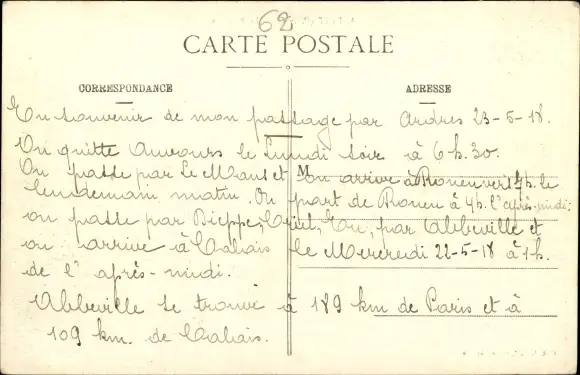 62
CARTE POSTALE
CORRESPONDANCE
ADRESSE
En souvenir de mon passage par Ardres 23-5-18.
On quitte Auvours le Lundi soir à 6 h. 30.
On passe par Le Mans et on arrive à Rouen vers 4h. le
M
lendemain matin. On part de Rouen à 4h. l'après-midi;
on passe par Dieppe, Eu, par Abbeville et
on arrive à Calais le Mercredi 22-5-18 à 1h.
de l'après-midi.
Abbeville se trouve à 189 km de Paris et à
109 km. de Calais.